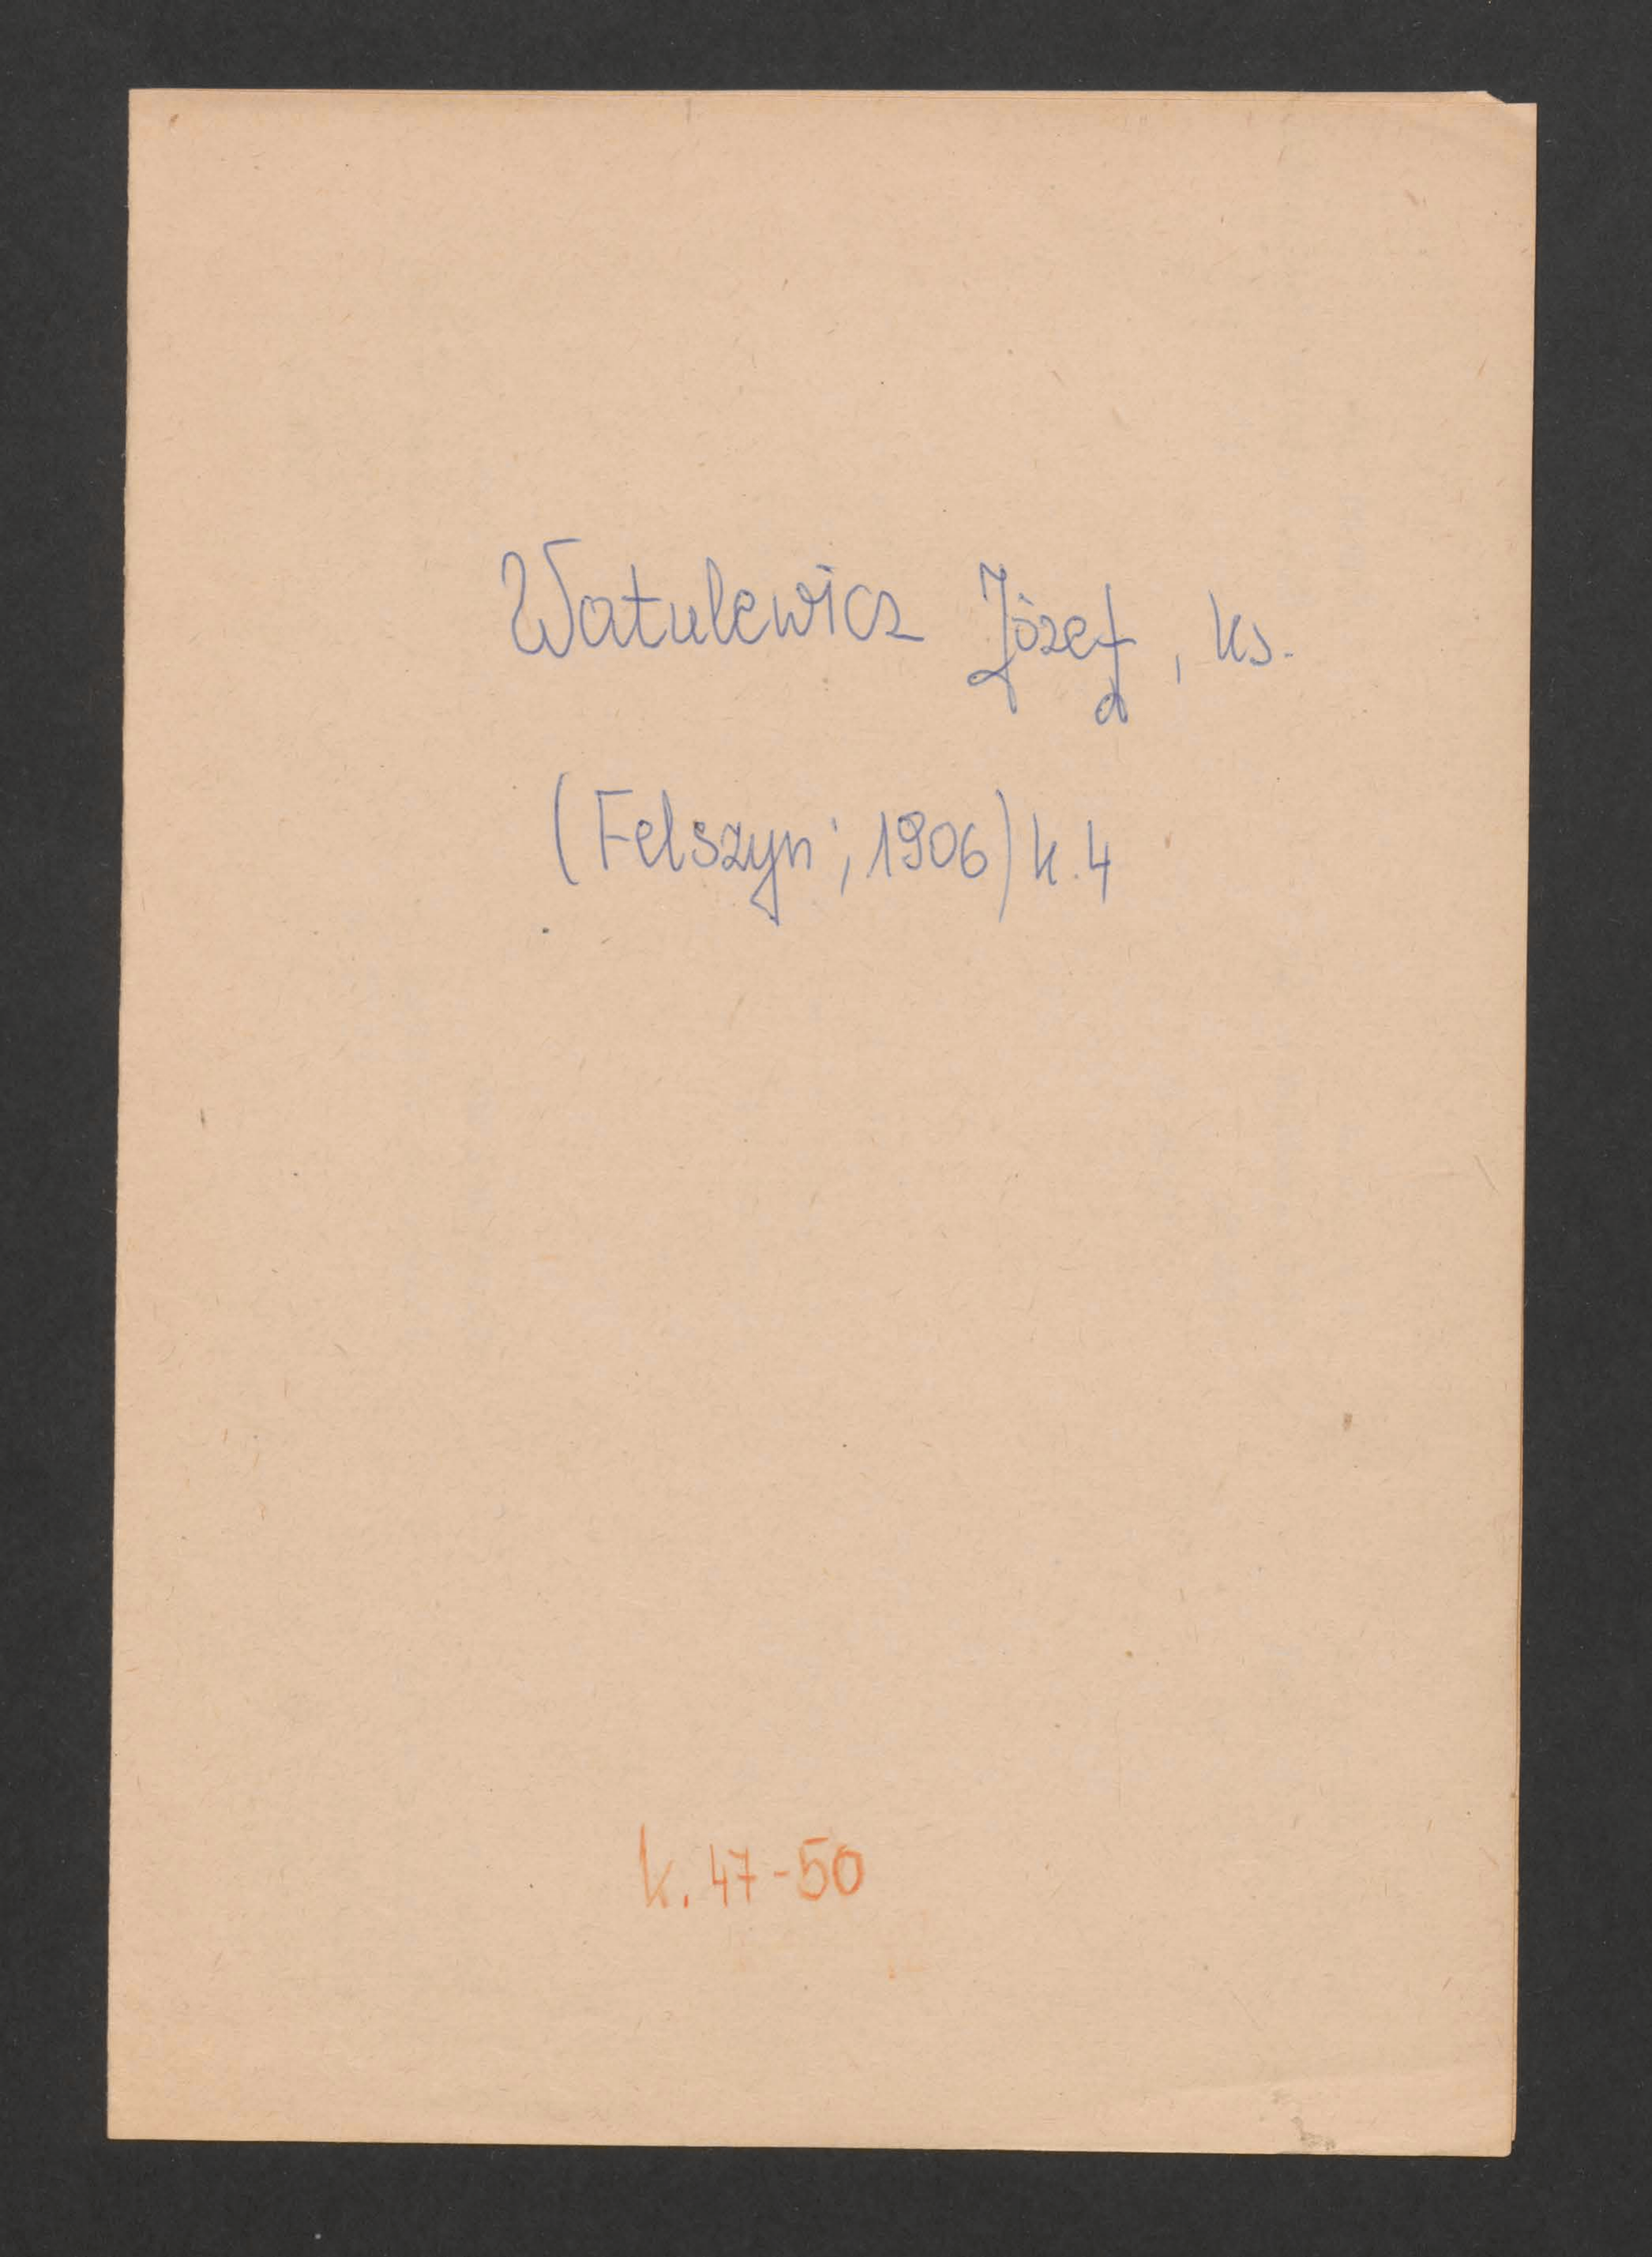 Watulewicz Józef, ks.
(Felszyn; 1906) k. 4
k. 47-50